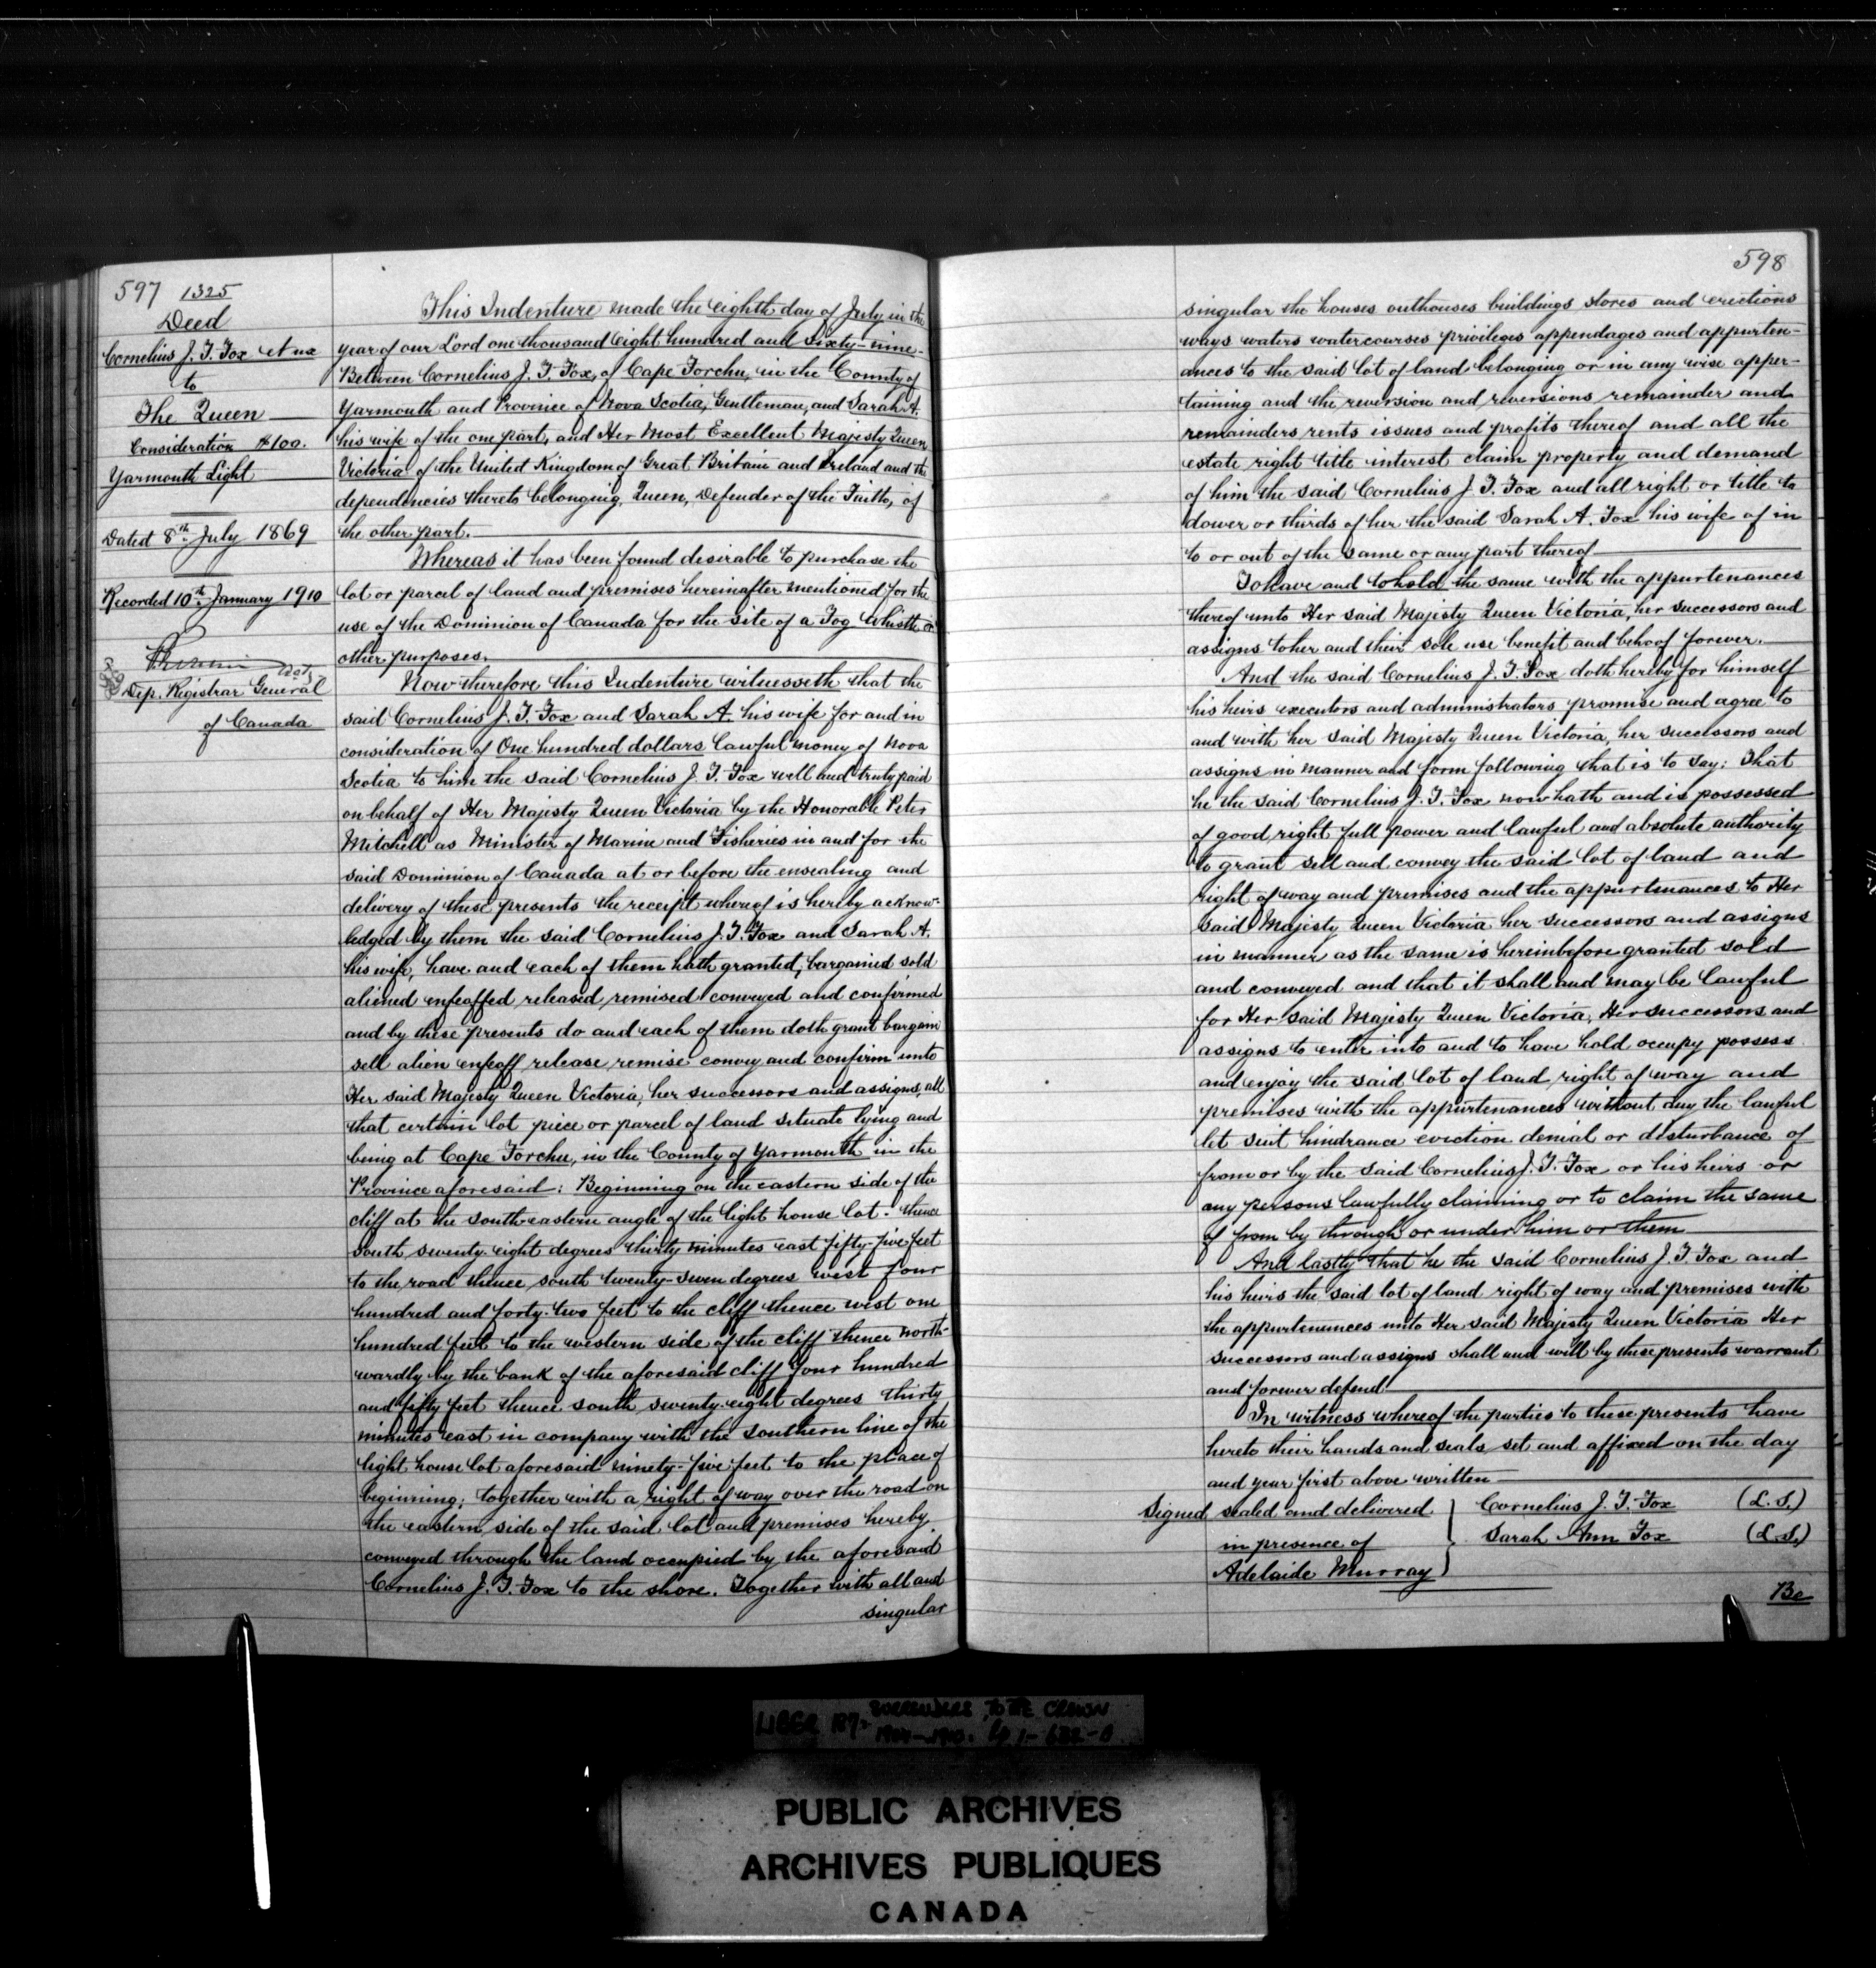 597 1325
Deed
Cornelius J. T. Fox et ux
to
The Queen
Consideration $100.
Yarmouth Light
Dated 8th July 1869
Recorded 10th January 1910
Dep. Registrar General
of Canada
This Indenture made the eighth day of July in the
year of our Lord one thousand Eight hundred and Sixty-nine.
Between Cornelius J. T. Fox, of Cape Forchu, in the County of
Yarmouth and Province of Nova Scotia, Gentleman, and Sarah A.
his wife of the one part, and Her Most Excellent Majesty Queen
Victoria of the United Kingdom of Great Britain and Ireland and the
dependencies thereto belonging, Queen, Defender of the Faith, of
the other part.
Whereas it has been found desirable to purchase the
lot or parcel of land and premises hereinafter mentioned for the
use of the Dominion of Canada for the site of a Fog Whistle or
other purposes.
Now therefore this Indenture witnesseth that the
said Cornelius J. T. Fox and Sarah A. his wife for and in
consideration of One hundred dollars lawful money of Nova
Scotia to him the said Cornelius J. T. Fox well and truly paid
on behalf of Her Majesty Queen Victoria by the Honorable Peter
Mitchell as Minister of Marine and Fisheries in and for the
said Dominion of Canada at or before the ensealing and
delivery of these presents the receipt whereof is hereby acknow-
ledged by them the said Cornelius J. T. Fox and Sarah A.
his wife, have and each of them hath granted, bargained sold
aliened enfeoffed released remised conveyed and confirmed
and by these presents do and each of them doth grant bargain
sell alien enfeoff release remise convey and confirm unto
Her said Majesty Queen Victoria, her successors and assigns, all
that certain lot piece or parcel of land situate lying and
being at Cape Forchu, in the County of Yarmouth in the
Province aforesaid: Beginning on the eastern side of the
cliff at the south eastern angle of the light house lot. thence
South seventy-eight degrees thirty minutes east fifty-five feet
to the road thence south twenty-seven degrees west four
hundred and forty-two feet to the cliff thence west one
hundred feet to the western side of the cliff thence north-
wardly by the bank of the aforesaid cliff four hundred
and fifty feet thence south seventy-eight degrees thirty
minutes east in company with the southern line of the
light house lot aforesaid ninety-five feet to the place of
beginning; together with a right of way over the road on
the eastern side of the said lot and premises hereby
conveyed through the land occupied by the aforesaid
Cornelius J. T. Fox to the shore. Together with all and
singular
598
singular the houses outhouses buildings stores and erections
ways waters watercourses privileges appendages and appurten-
ances to the said lot of land belonging or in any wise apper-
taining and the reversion and reversions remainder and
remainders rents issues and profits thereof and all the
estate right title interest claim property and demand
of him the said Cornelius J. T. Fox and all right or title to
dower or thirds of her the said Sarah A. Fox his wife of in
to or out of the same or any part thereof
To have and to hold the same with the appurtenances
thereof unto Her said Majesty Queen Victoria, her successors and
assigns to her and their sole use benefit and behoof forever.
And the said Cornelius J. T. Fox doth hereby for himself
his heirs executors and administrators promise and agree to
and with her said Majesty Queen Victoria, her successors and
assigns in manner and form following that is to say: That
he the said Cornelius J. T. Fox now hath and is possessed
of good right full power and lawful and absolute authority
to grant sell and convey the said lot of land and
right of way and premises and the appurtenances to Her
said Majesty Queen Victoria her successors and assigns
in manner as the same is hereinbefore granted sold
and conveyed and that it shall and may be lawful
for Her said Majesty Queen Victoria, Her successors and
assigns to enter into and to have hold occupy possess
and enjoy the said lot of land right of way and
premises with the appurtenances without any the lawful
let suit hindrance eviction denial or disturbance of
from or by the said Cornelius J. T. Fox or his heirs or
any persons lawfully claiming or to claim the same
of from by through or under him or them
And lastly that he the said Cornelius J. T. Fox and
his heirs the said lot of land right of way and premises with
the appurtenances unto Her said Majesty Queen Victoria Her
successors and assigns shall and will by these presents warrant
and forever defend
In witness whereof the parties to these presents have
hereto their hands and seals set and affixed on the day
and year first above written
Signed sealed and delivered } Cornelius J. T. Fox (L.S.)
in presence of Sarah Ann Fox (L.S.)
Adelaide Murray
Be
LIBER SURRENDERS TO THE CROWN
PUBLIC ARCHIVES
ARCHIVES PUBLIQUES
CANADA